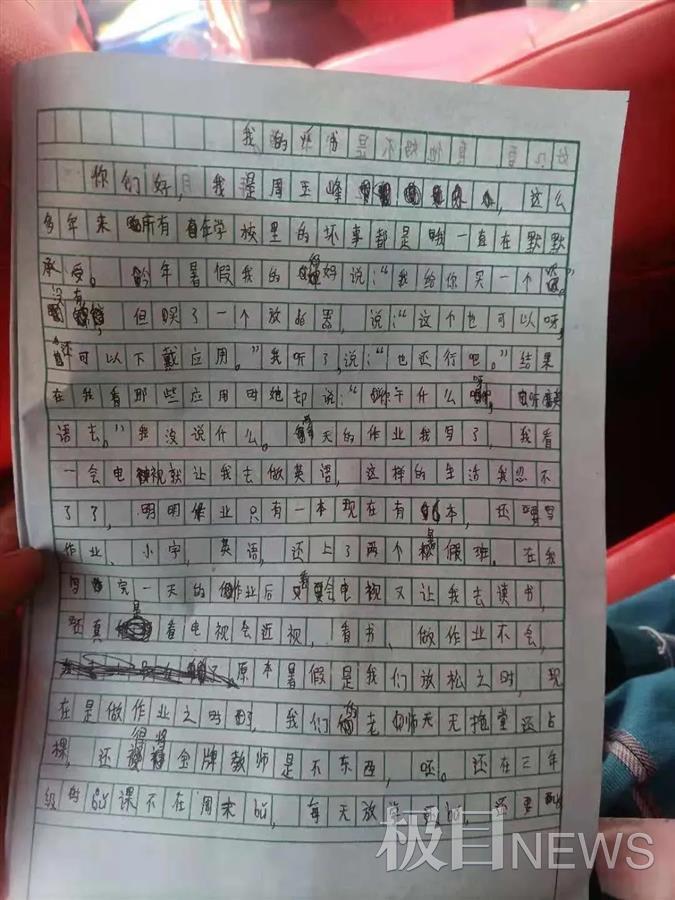 你们好,我是周玉峰,这么
多年来所有在学校里的坏事都是我一直在默默
承受。今年暑假我的妈说:“我给你买一个。”
没有,但买了一个放拍器,说:“这个也可以呀,
还可以下戴应用。”我听了,说:“也还行吧。”结果
在我看那些应用时她却说:“你干什么呀,听英
语去。”我没说什么。天的作业我写了,我看
一会电视就让我去做英语,这样的生活我忍不
了了,明明作业只有一本现在有本,还要写
作业、小字、英语,还上了两个暑假班。在我
写完一天的作业后看会电视又让我去读书,
还真是看电视会近视,看书、做作业不会,
原本暑假是我们放松之时,现
在是做作业之时,我们的老师天天拖堂还占
棵,还得将金牌教师是不东西,呸。还在三年
级时的课不在周末的,每天放,还要
极目NEWS